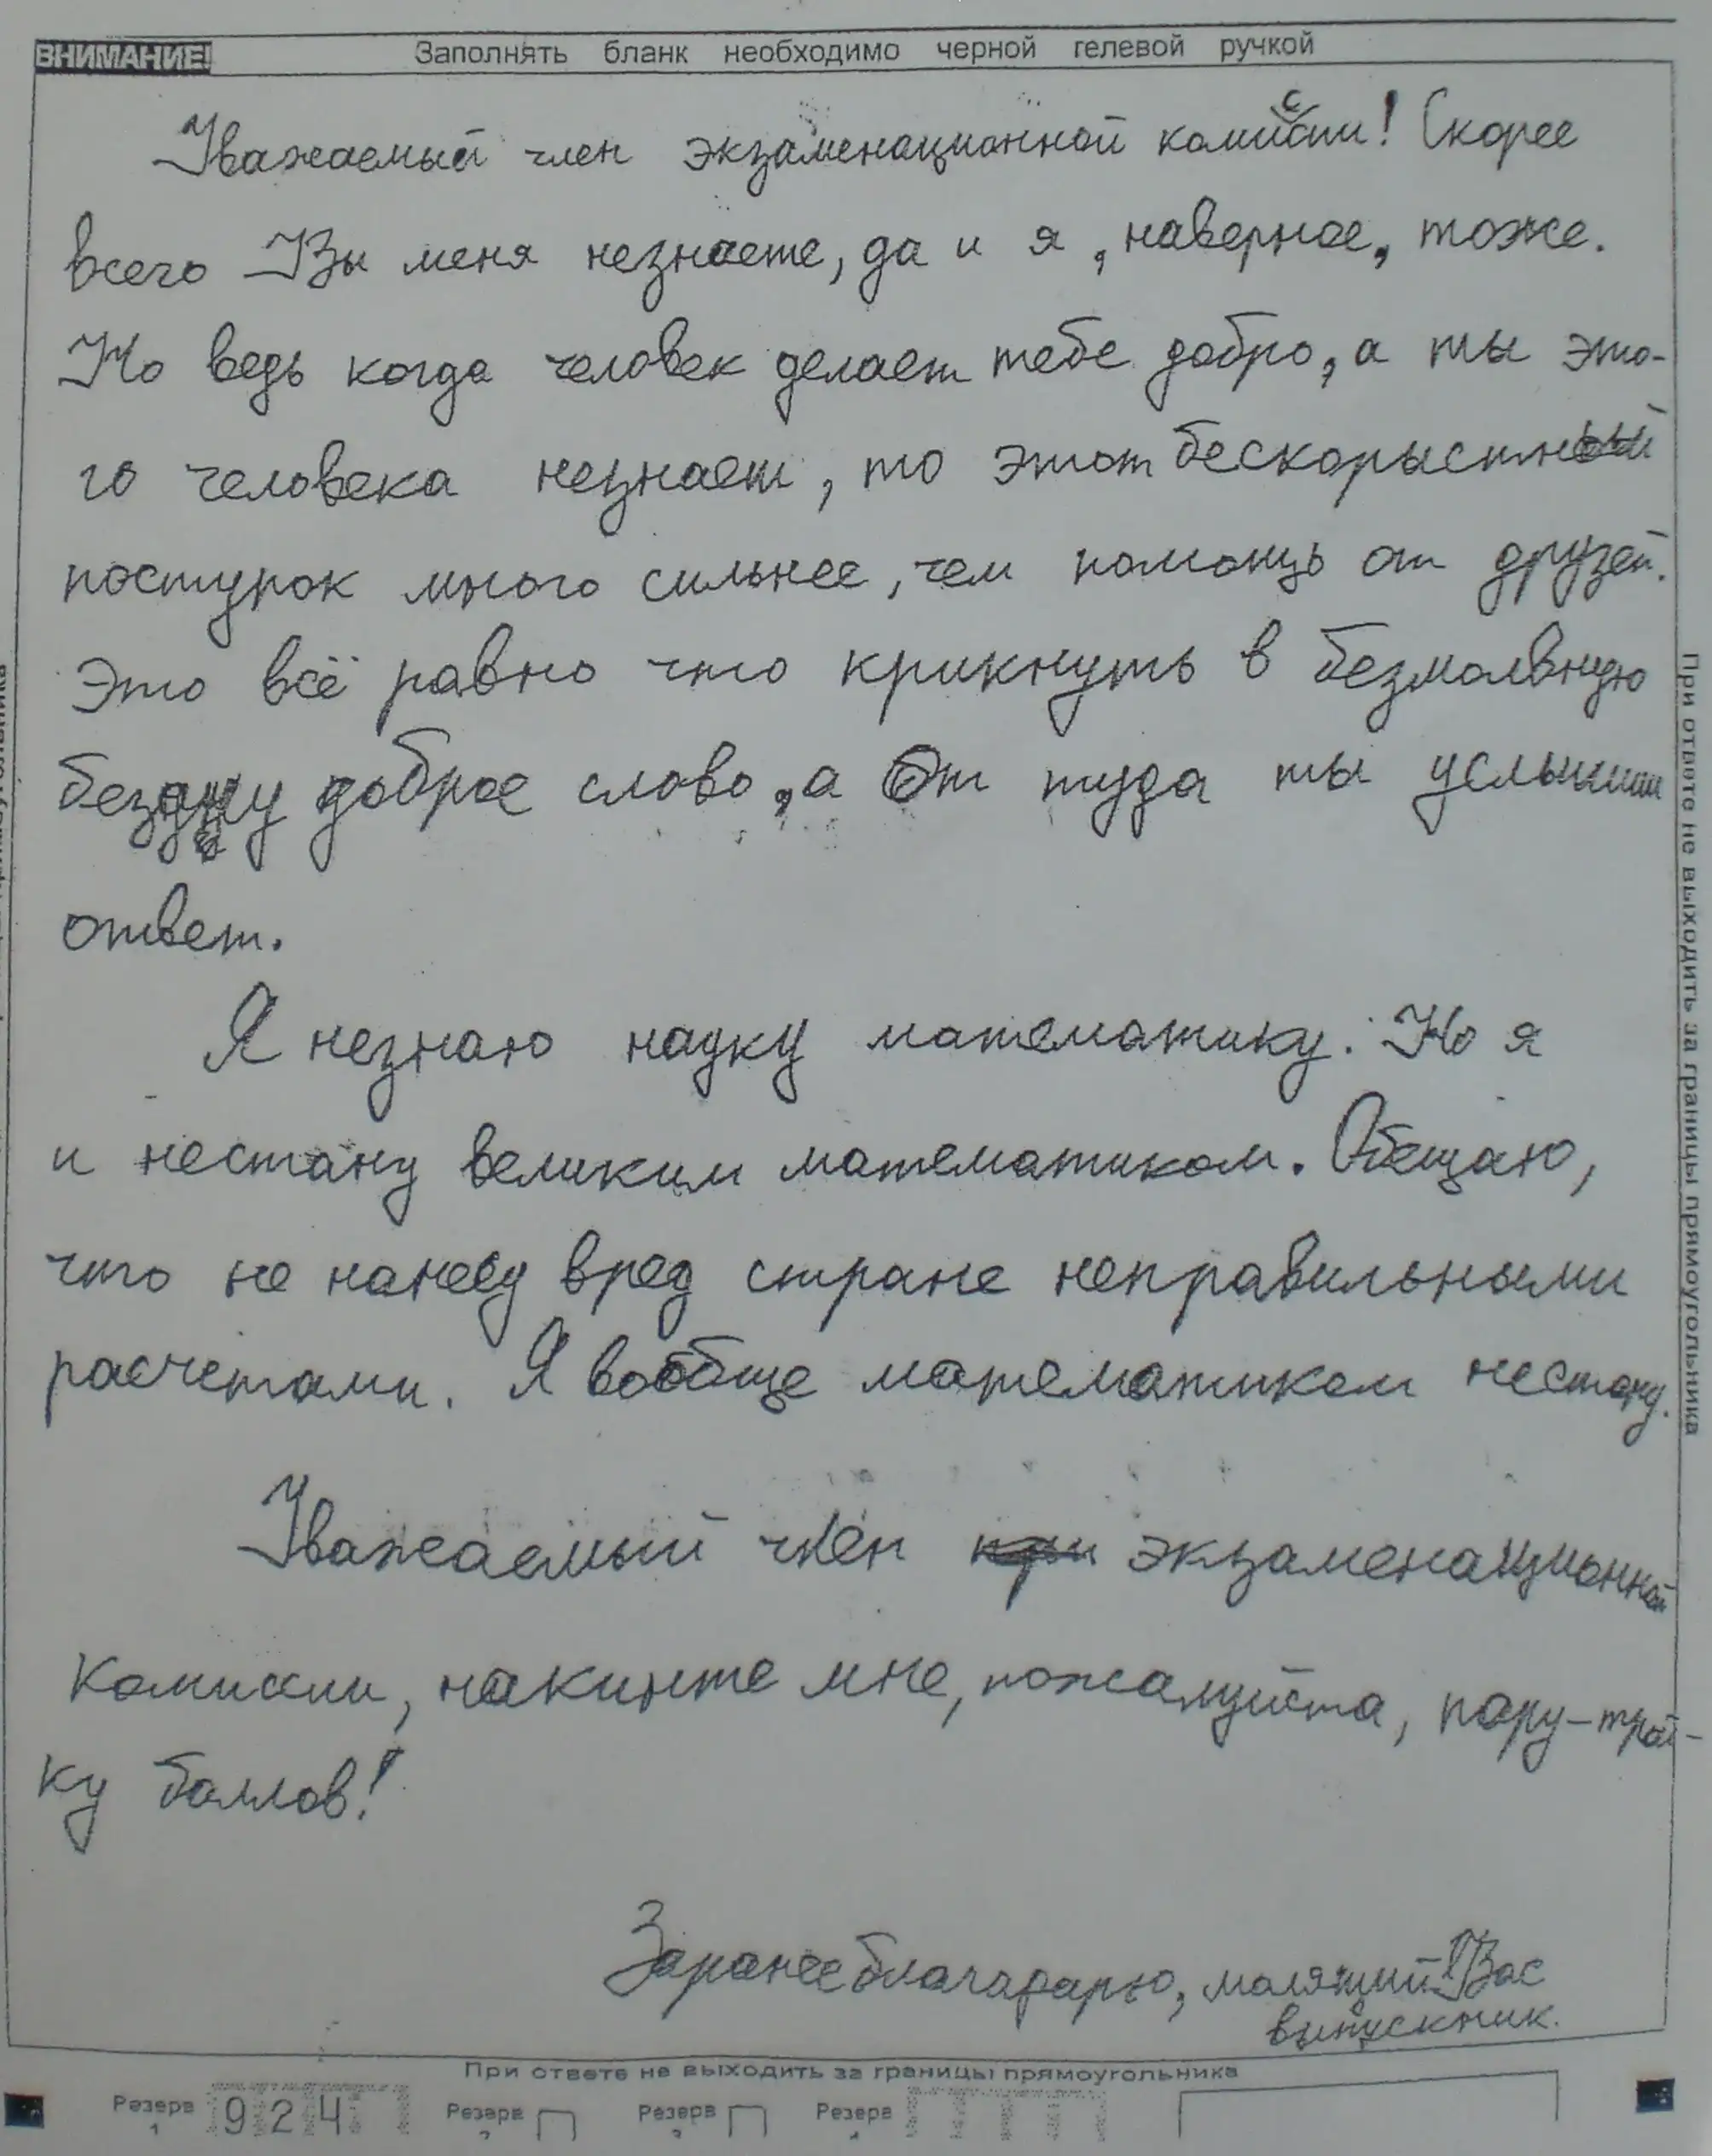 ВНИМАНИЕ! Заполнять бланк необходимо черной гелевой ручкой
Уважаемый член экзаменационной комиссии! Скорее
всего Вы меня незнаете, да и я, наверное, тоже.
Но ведь когда человек делает тебе добро, а ты это-
го человека незнаеш, то этот бескорыстный
поступок много сильнее, чем помощь от друзей.
Это всё равно что крикнуть в безмолвную
бездну доброе слово, а От туда ты услышиш
ответ.
Я незнаю науку математику. Но я
и нестану великим математиком. Обещаю,
что не нанесу вред стране неправильными
расчетами. Я вообще математиком нестану.
Уважаемый член экзаменационной
комиссии, накинте мне, пожалуйста, пару-трой-
ку баллов!
Заранее благодарю, молящий Вас
выпускник.
При ответе не выходить за границы прямоугольника
При ответе не выходить за границы прямоугольника
Резерв 924 Резерв Резерв Резерв